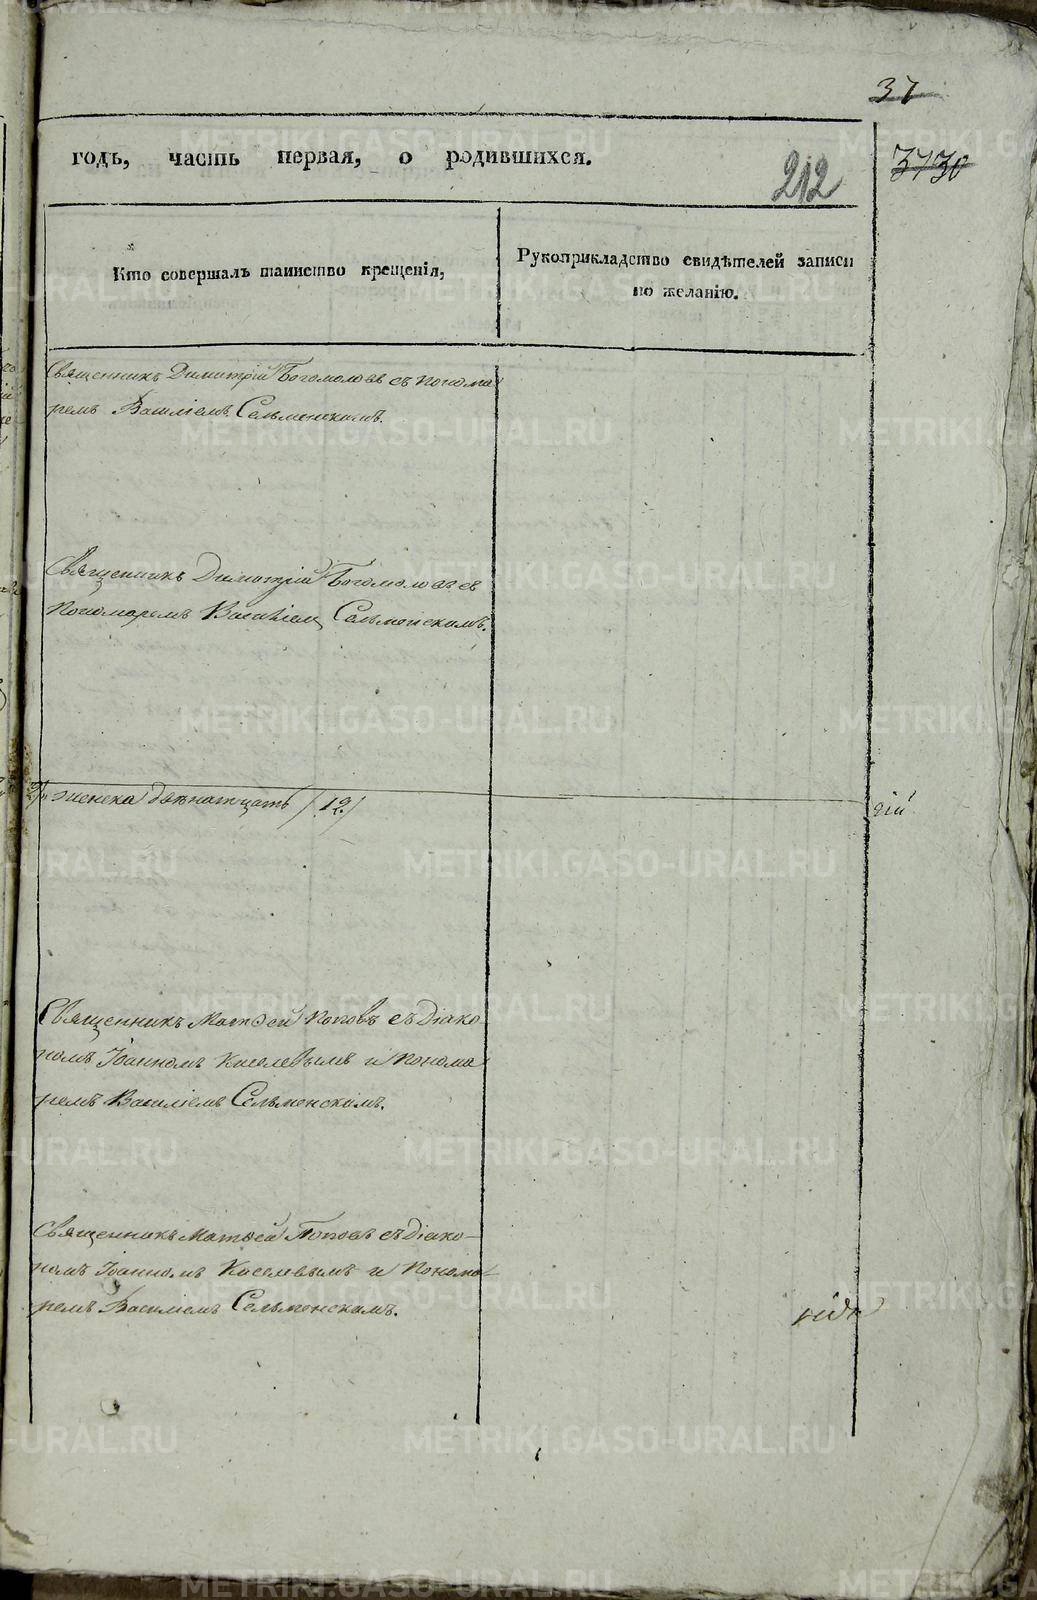 37
годъ, часть первая, о родившихся.
212
3730
Кто совершалъ таинство крещенія,
Рукоприкладство свидѣтелей записи
по желанію.
Священникъ Димитрій Богомоловъ съ понома
ремъ Василіемъ Сельменскимъ.
Священникъ Димитрій Богомоловъ съ
Пономаремъ Василіемъ Сельменскимъ.
женска двенатцать /12/
Священникъ Матѳей Поповъ съ Діако
номъ Іоанномъ Киселевымъ и Понома
ремъ Василіемъ Сельменскимъ.
Священникъ Матѳей Поповъ съ Діако-
номъ Іоанномъ Киселевымъ и Понома-
ремъ Василіемъ Сельменскимъ.
METRIKI.GASO-URAL.RU